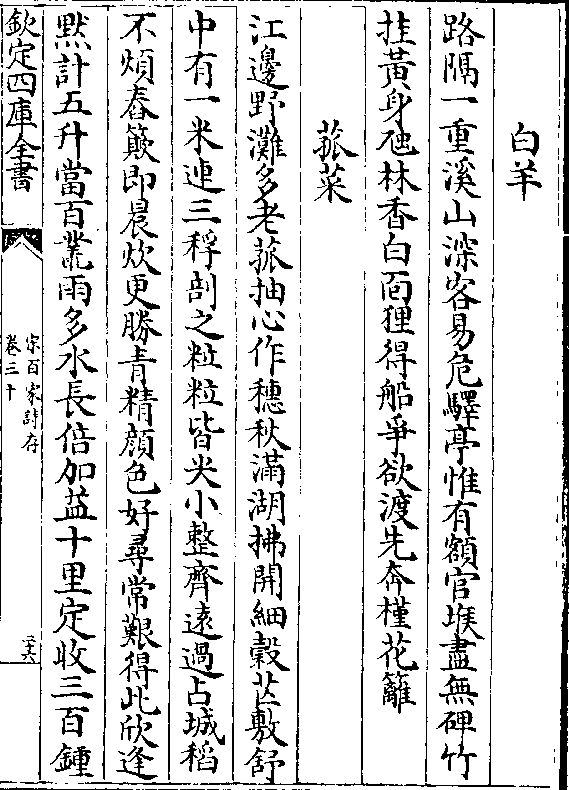 白羊
路隔一重溪山深客易危驛亭惟有額官堠盡無碑竹
挂黃身虺林香白面狸得船爭欲渡先奔槿花籬
菰菜
江邊野灘多老菰抽心作穗秋滿湖拂開細縠芒敷舒
中有一米連三稃剖之粒粒皆尖小整齊遠過占城稻
不煩舂簸即晨炊更勝青精顏色好尋常艱得此欣逢
默計五升當百叢雨多水長倍加益十里定收三百鍾
欽定四庫全書
宋百家詩存
卷三十
二六